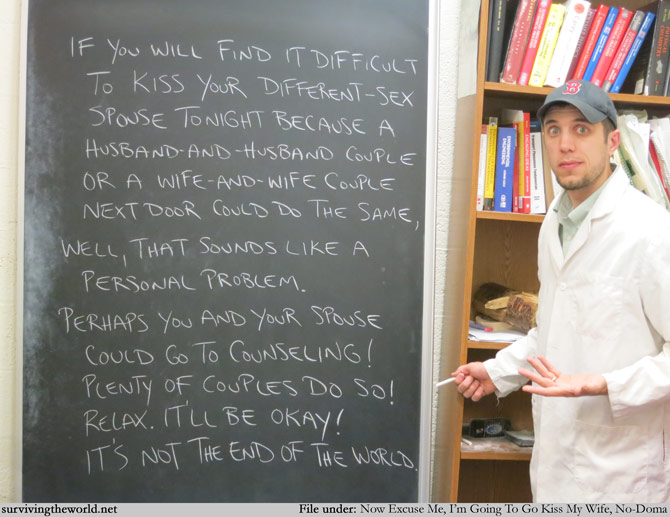 IF YOU WILL FIND IT DIFFICULT
TO KISS YOUR DIFFERENT-SEX
SPOUSE TONIGHT BECAUSE A
HUSBAND-AND-HUSBAND COUPLE
OR A WIFE-AND-WIFE COUPLE
NEXT DOOR COULD DO THE SAME,
WELL, THAT SOUNDS LIKE A
PERSONAL PROBLEM.
PERHAPS YOU AND YOUR SPOUSE
COULD GO TO COUNSELING!
PLENTY OF COUPLES DO SO!
RELAX. IT'LL BE OKAY!
IT'S NOT THE END OF THE WORLD.
B
survivingtheworld.net
File under: Now Excuse Me, I'm Going To Go Kiss My Wife, No-Doma